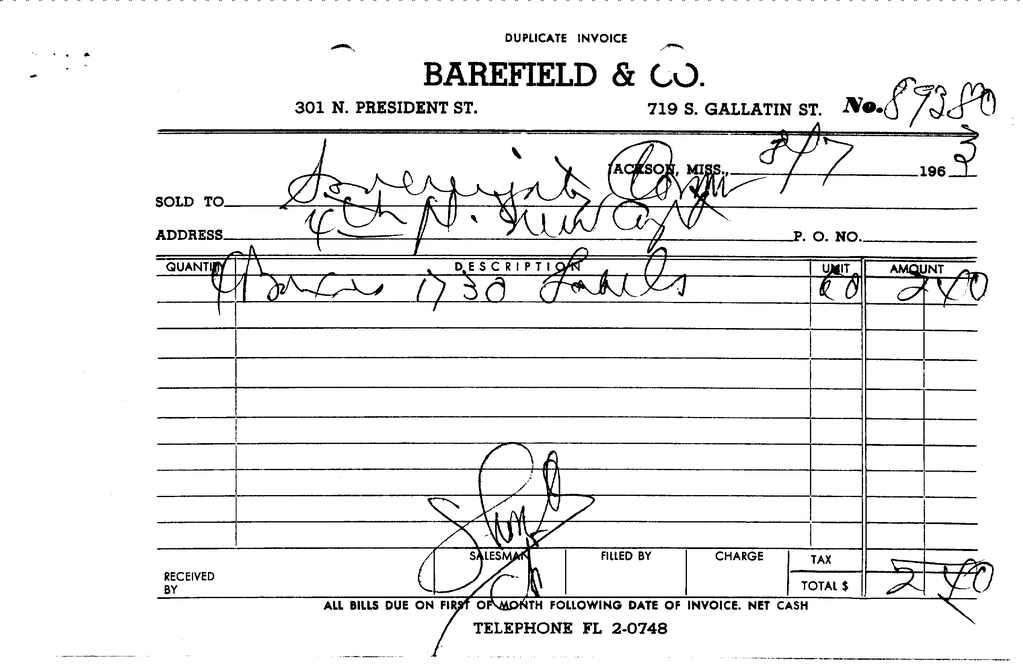 DUPLICATE INVOICE
BAREFIELD & CO.
301 N. PRESIDENT ST. 719 S. GALLATIN ST. No. 89380
JACKSON, MISS., 8/7 1963
SOLD TO Sovereignty Comm
ADDRESS 4th fl. New Capt P. O. NO.
QUANTITY DESCRIPTION UNIT AMOUNT
4 Boxes 1730 Labels 60 2 40
SALESMAN FILLED BY CHARGE TAX
RECEIVED BY TOTAL $ 2 40
ALL BILLS DUE ON FIRST OF MONTH FOLLOWING DATE OF INVOICE. NET CASH
TELEPHONE FL 2-0748